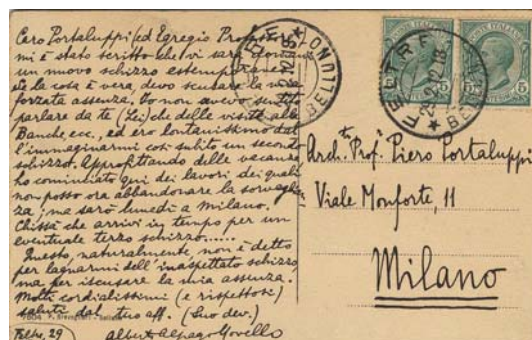 Caro Portaluppi (ed Egregio Professore)
mi è stato scritto che vi sarà domani
un nuovo schizzo estemporaneo.
Se la cosa è vera, devo scusare la mia
forzata assenza. Io non avevo sentito
parlare da te (Lei) che delle visite alle
Banche, ecc., ed ero lontanissimo dal
l'immaginarmi così subito un secondo
schizzo. Approfittando delle vacanze,
ho cominciato qui dei lavori dei quali
non posso ora abbandonare la sorveglian
za; ma sarò lunedì a Milano.
Chissà che arrivi in tempo per un
eventuale terzo schizzo......
Questo, naturalmente, non è detto
per lagnarmi dell'inaspettato schizzo,
ma per iscusare la mia assenza.
Molti cordialissimi (e rispettosi)
saluti dal tuo aff. (Suo dev.)
Alberto Alpago Novello
Feltre, 29
7604
BELLUNO
FELTRE
29.2.12.18
BELLUNO
5
5
Arch.tto Prof.r Piero Portaluppi
Viale Monforte, 11
Milano